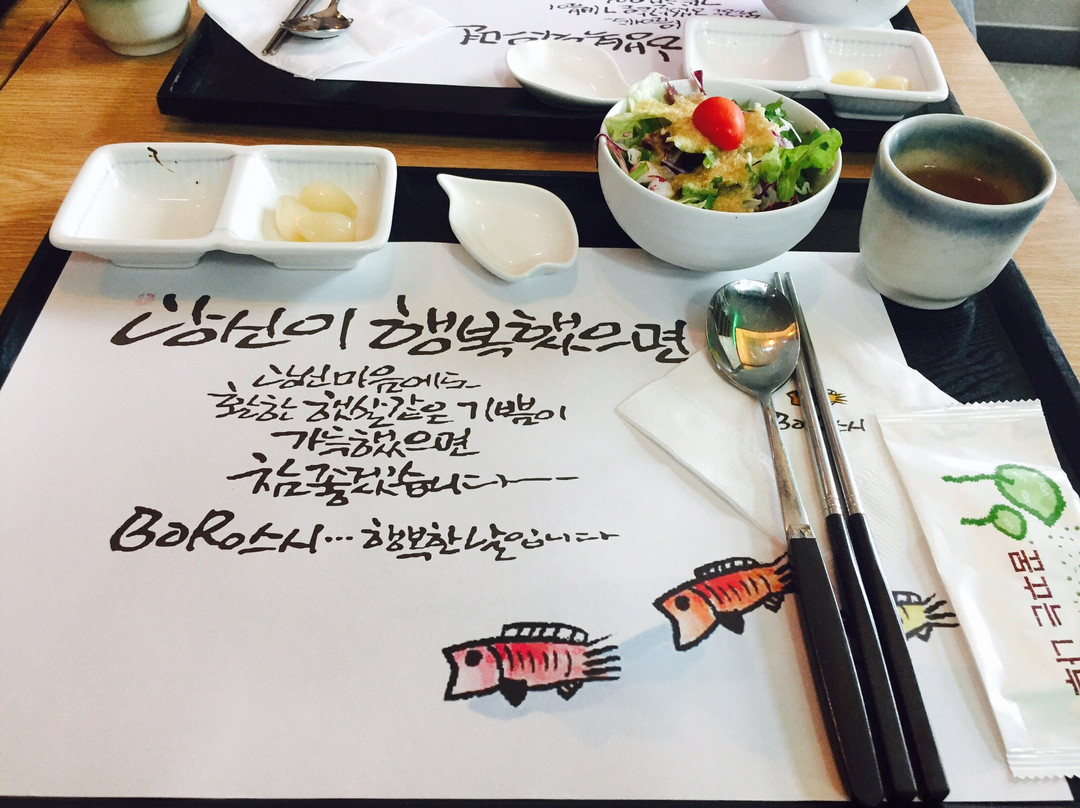 당신이 행복했으면
당신마음에도
환한 햇살같은 기쁨이
가득했으면
참 좋겠습니다
BORO스시... 행복한 날입니다
BORO스시